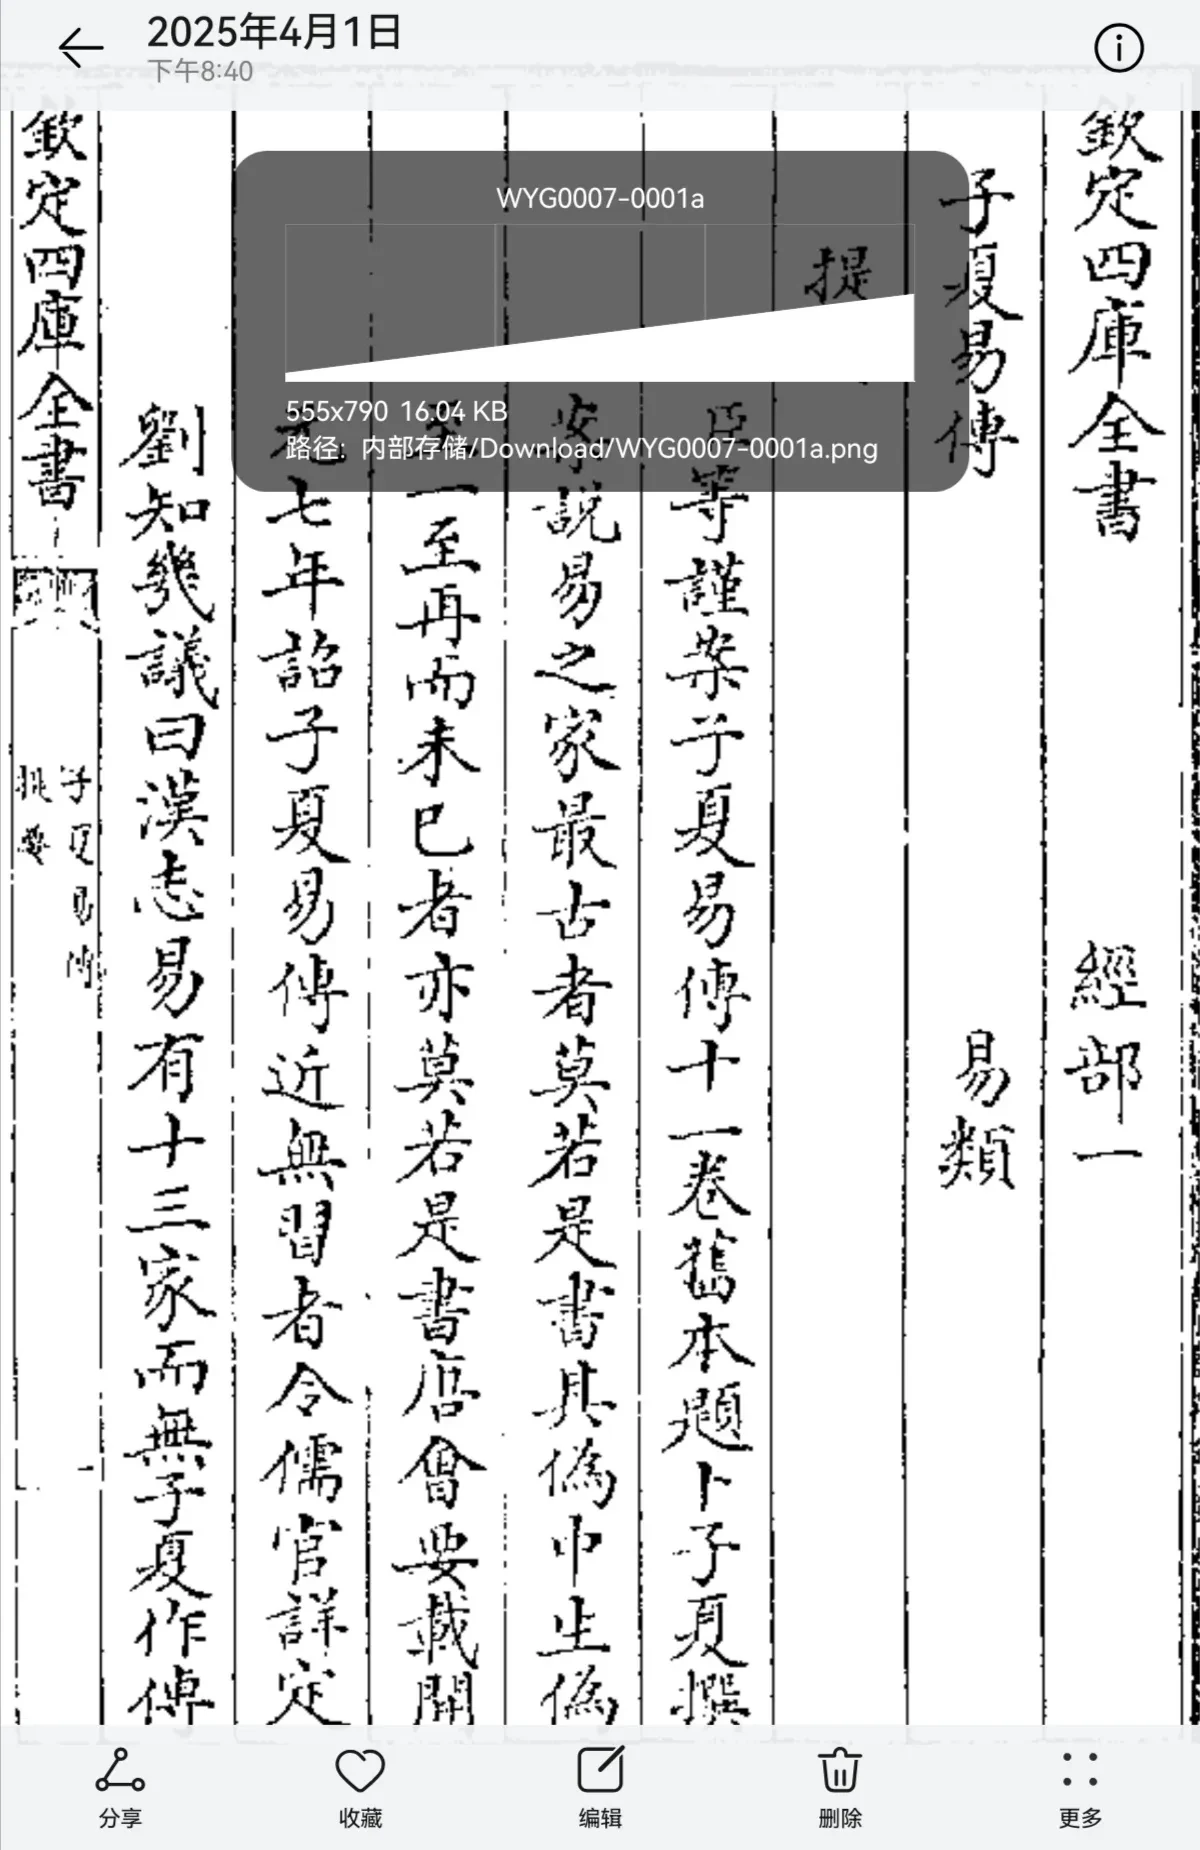 2025年4月1日
下午8:40
WYG0007-0001a
555x790 16.04 KB
路径：内部存储/Download/WYG0007-0001a.png
欽定四庫全書 經部一
子夏易傳 易類
提
臣等謹案子夏易傳十一卷舊本題卜子夏撰
案說易之家最古者莫若是書其偽中生偽
至一至再而未已者亦莫若是書唐會要載開
元七年詔子夏易傳近無習者令儒官詳定
劉知幾議曰漢志易有十三家而無子夏作傳
欽定四庫全書
子夏易傳
提要
分享
收藏
编辑
删除
更多